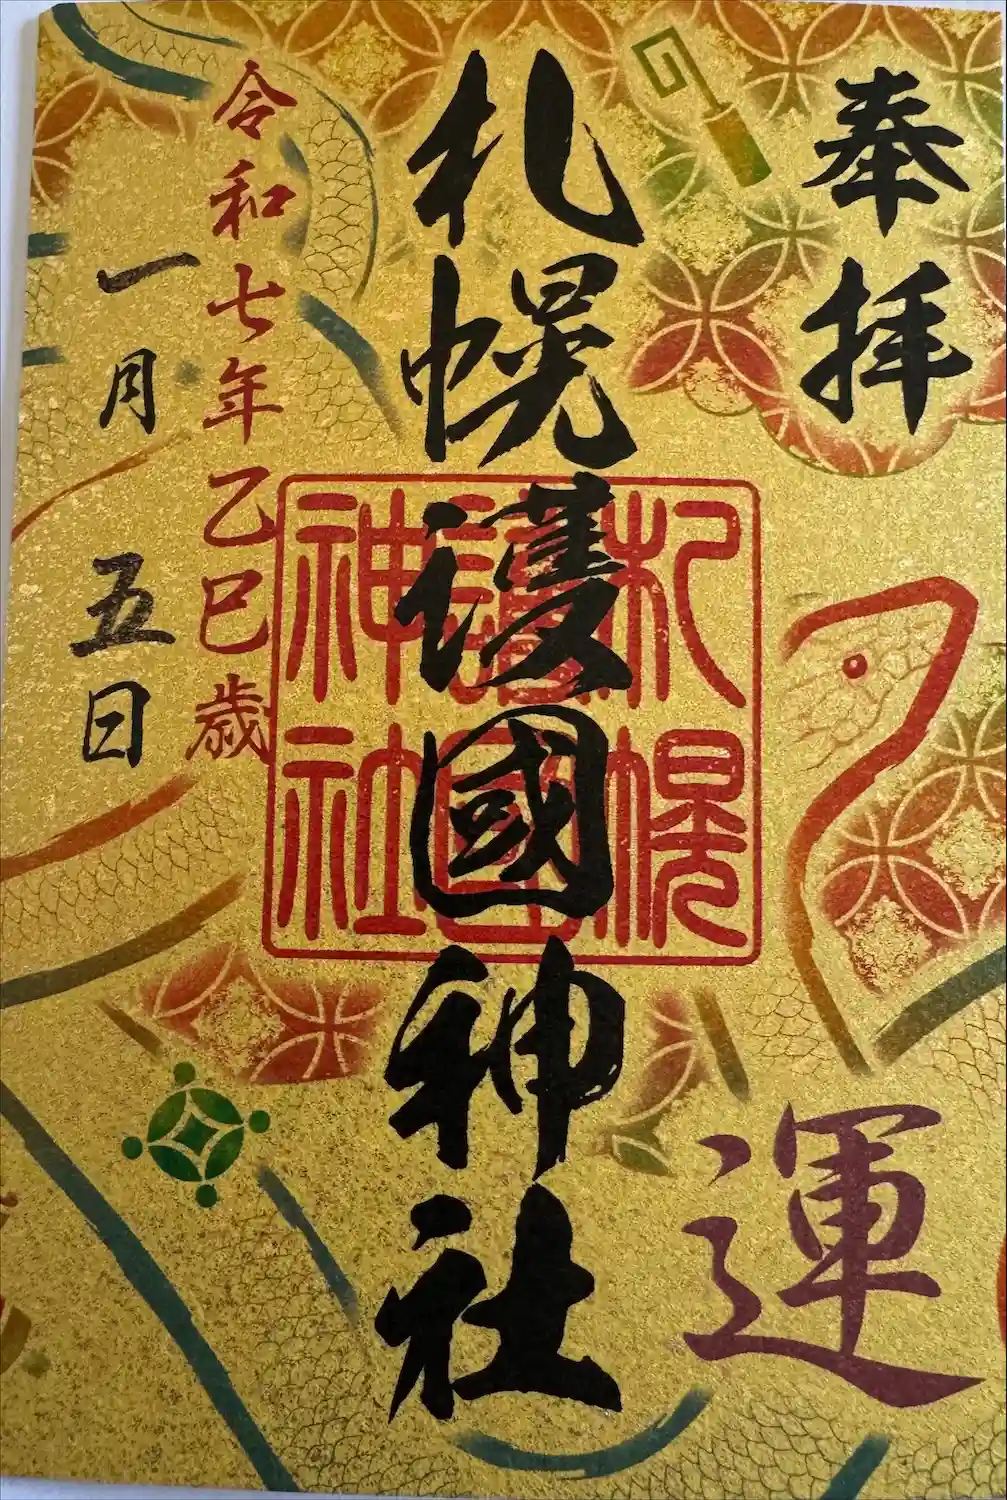 奉拝
運
札幌護國神社
札幌
護國
神社
令和七年乙巳歳
一月五日